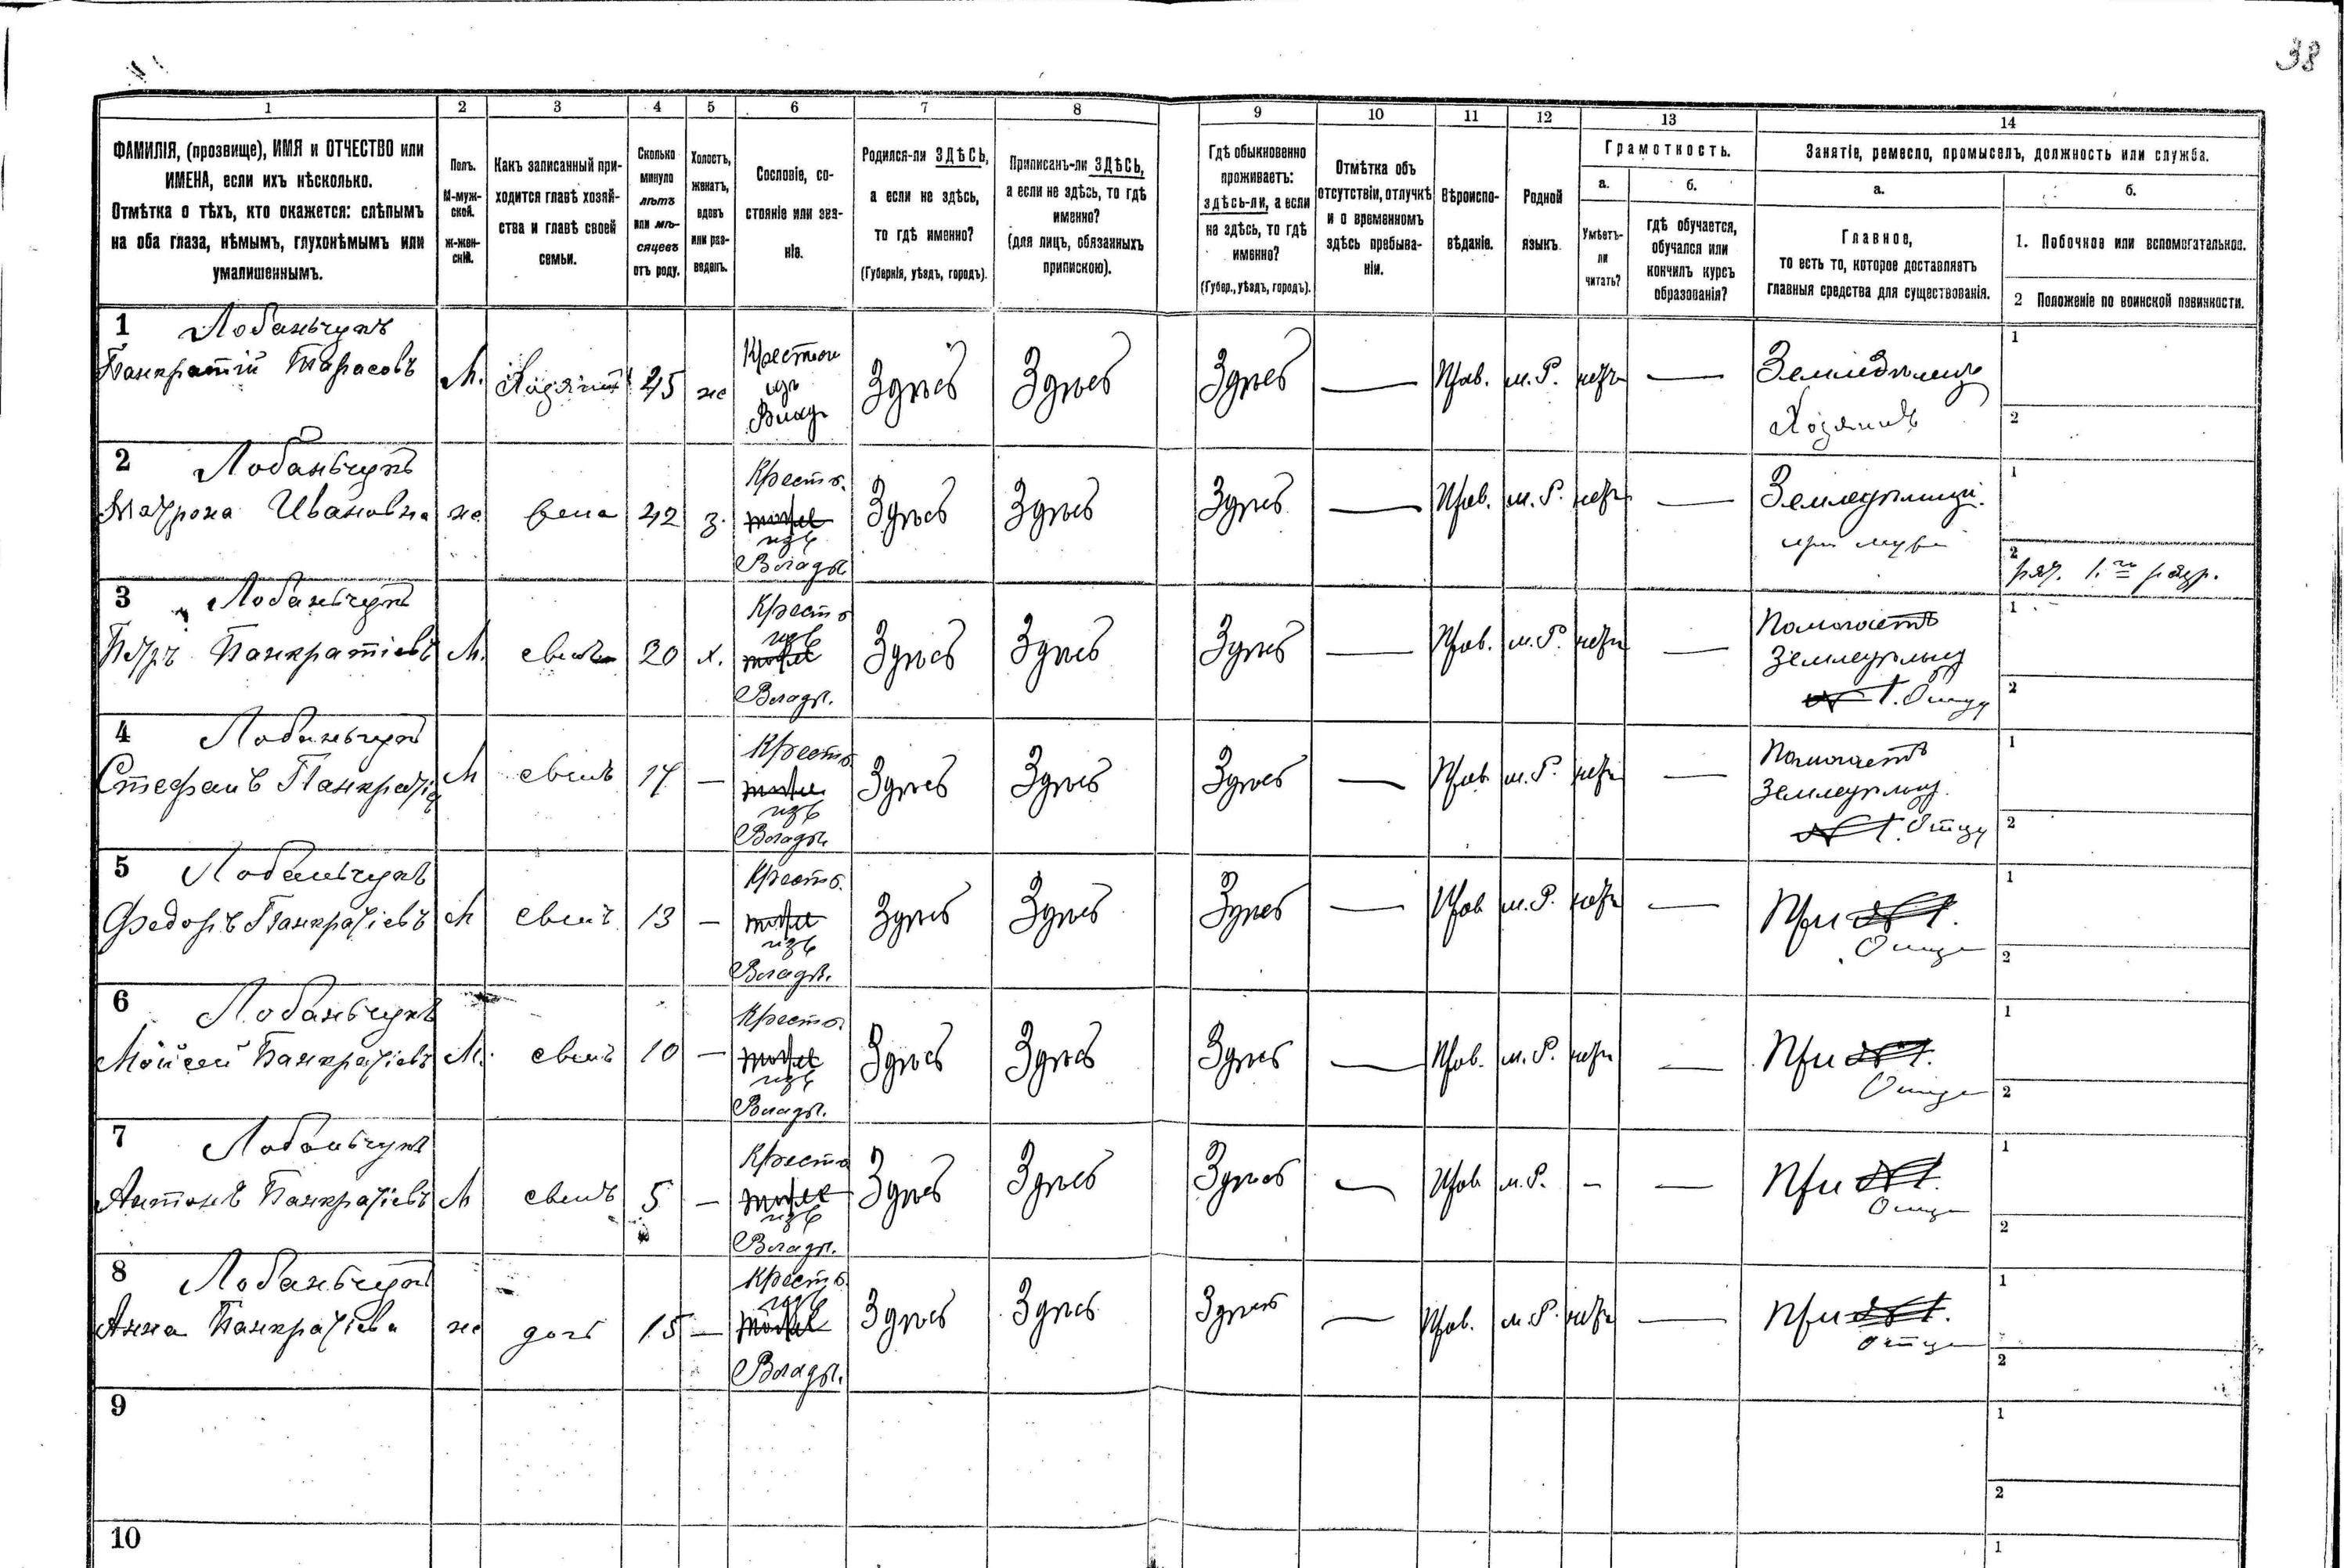 38
1 2 3 4 5 6 7 8 9 10 11 12 13 14
ФАМИЛІЯ, (прозвище), ИМЯ и ОТЧЕСТВО или
ИМЕНА, если ихъ нѣсколько.
Отмѣтка о тѣхъ, кто окажется: слѣпымъ
на оба глаза, нѣмымъ, глухонѣмымъ или
умалишеннымъ.
Полъ.
М-муж-
ской.
ж-жен-
скій.
Какъ записанный при-
ходится главѣ хозяй-
ства и главѣ своей
семьи.
Сколько
минуло
лѣтъ
или мѣ-
сяцевъ
отъ роду.
Холостъ,
женатъ,
вдовъ
или раз-
веденъ.
Сословіе, со-
стояніе или зва-
ніе.
Родился-ли ЗДѢСЬ,
а если не здѣсь,
то гдѣ именно?
(Губернія, уѣздъ, городъ).
Приписанъ-ли ЗДѢСЬ,
а если не здѣсь, то гдѣ
именно?
(для лицъ, обязанныхъ
припискою).
Гдѣ обыкновенно
проживаетъ:
здѣсь-ли, а если
не здѣсь, то гдѣ
именно?
(Губер., уѣздъ, городъ).
Отмѣтка объ
отсутствіи, отлучкѣ
и о временномъ
здѣсь пребыва-
ніи.
Вѣроиспо-
вѣданіе.
Родной
языкъ.
Грамотность.
а.
Умѣетъ-
ли
читать?
б.
гдѣ обучается,
обучался или
кончилъ курсъ
образованія?
Занятіе, ремесло, промыселъ, должность или служба.
а.
Главное,
то есть то, которое доставляетъ
главныя средства для существованія.
б.
1. Побочное или вспомогательное.
2 Положеніе по воинской повинности.
1 Лобаньчукъ
Панкратій Тарасовъ
М. Хозяинъ 45 же
Крестьян
изъ
Влад
Здѣсь Здѣсь Здѣсь — Прав. м. Р. нетъ —
Земледѣлецъ
Хозяинъ
1
2
2 Лобаньчукъ
Матрона Ивановна
же жена 42 з.
Кресть.
изъ
Влады
Здѣсь Здѣсь Здѣсь — Прав. м. Р. нетъ —
Земледѣлица
при мужѣ
1
2
ряд. 1. разр.
3 Лобаньчукъ
Петръ Панкратіевъ
М. сынъ 20 х.
Кресть
изъ
Влады.
Здѣсь Здѣсь Здѣсь — Прав. м. Р. нетъ —
Помогаетъ
Земледѣлцу
№ 1. Отцу
1
2
4 Лобаньчукъ
Стефанъ Панкратіев
М сынъ 17 —
Кресть
изъ
Влады.
Здѣсь Здѣсь Здѣсь — Прав. м. Р. нетъ —
Помогаетъ
Земледѣлцу.
№ 1. Отцу
1
2
5 Лобаньчукъ
Федоръ Панкратіевъ
М сынъ 13 —
Кресть.
изъ
Влады.
Здѣсь Здѣсь Здѣсь — Прав м. Р. нетъ —
При № 1.
Отце
1
2
6 Лобаньчукъ
Мойсей Панкратіевъ
М. сынъ 10 —
Кресть
изъ
Влады.
Здѣсь Здѣсь Здѣсь — Прав. м. Р. нетъ —
При № 1.
Отце
1
2
7 Лобаньчукъ
Антонъ Панкратіевъ
М сынъ 5 —
Кресть
изъ
Влады.
Здѣсь Здѣсь Здѣсь — Прав м. Р. — —
При № 1.
Отце
1
2
8 Лобаньчукъ
Анна Панкратіева
же дочь 15 —
Кресть.
изъ
Влады.
Здѣсь Здѣсь Здѣсь — Прав. м. Р. нетъ —
При № 1.
Отце
1
2
9
1
2
10
1